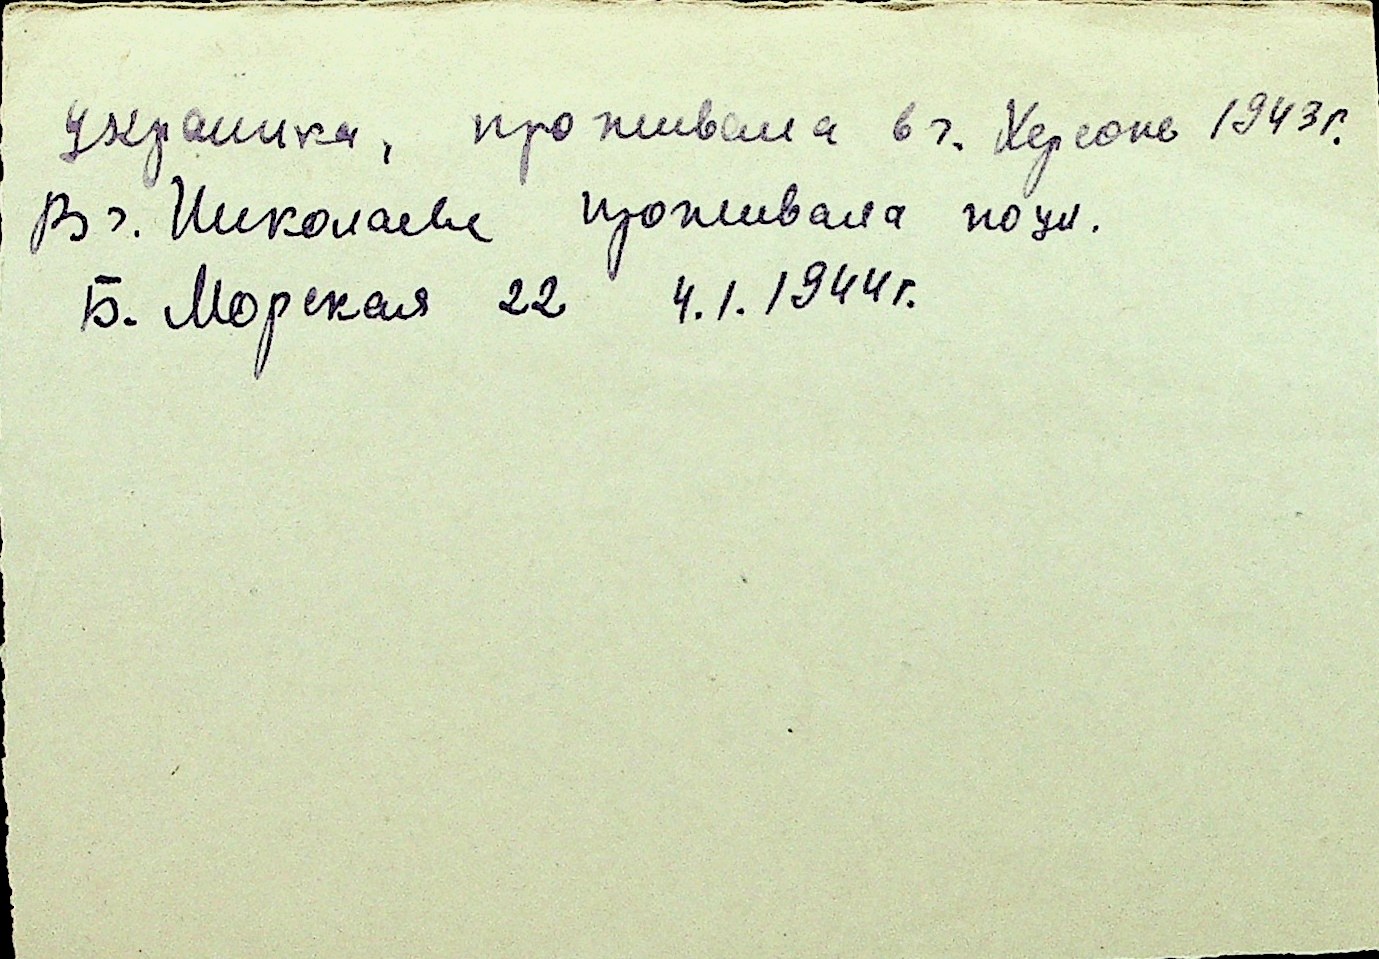 украинка, проживала в г. Херсоне 1943г.
В г. Николаеве проживала по ул.
Б. Морская 22 4.1.1944г.